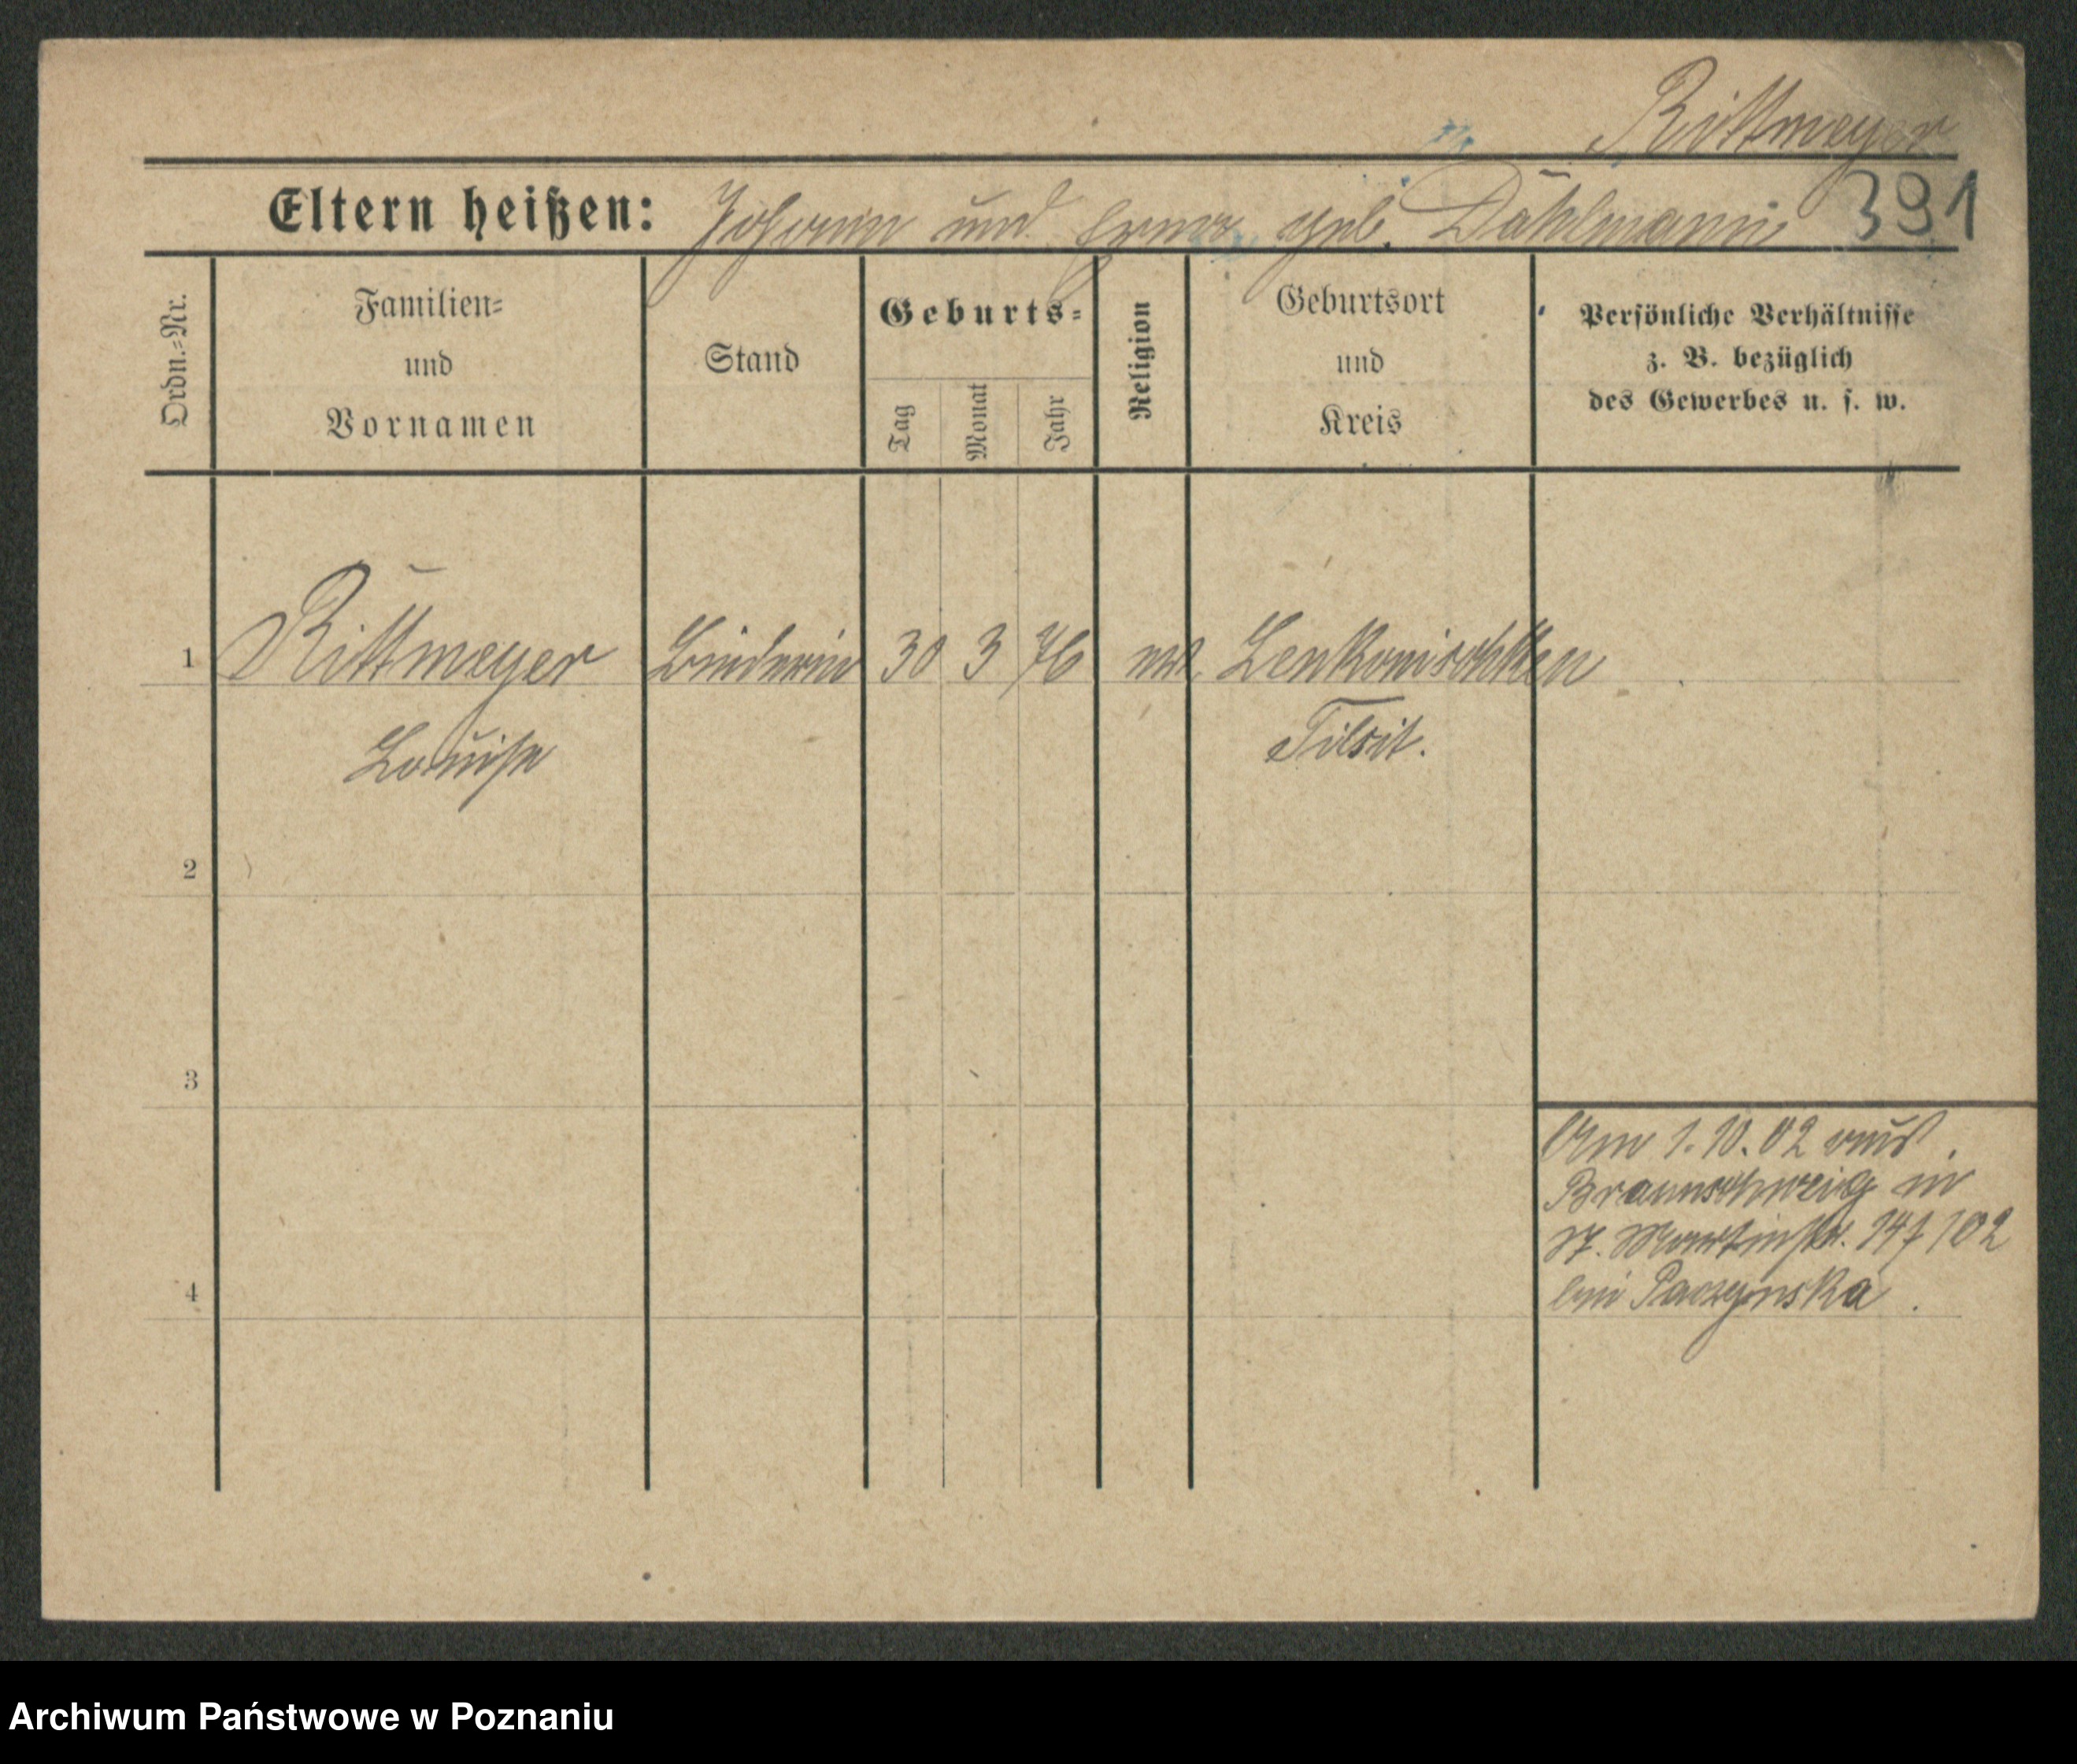 Rittmeyer
Eltern heißen: Johann und geb. Dahlmann 391
Ordn.=Nr.
Familien=
und
Vornamen
Stand
Geburts=
Tag
Monat
Jahr
Religion
Geburtsort
und
Kreis
Persönliche Verhältnisse
z. B. bezüglich
des Gewerbes u. s. w.
1 Rittmeyer 30 3 76 Lenkonischken
Louise Tilsit.
2
3
Am 1.10.02 aus
Braunschweig in
St. Martinstr. 147/02
bei Paczynska.
4
Archiwum Państwowe w Poznaniu